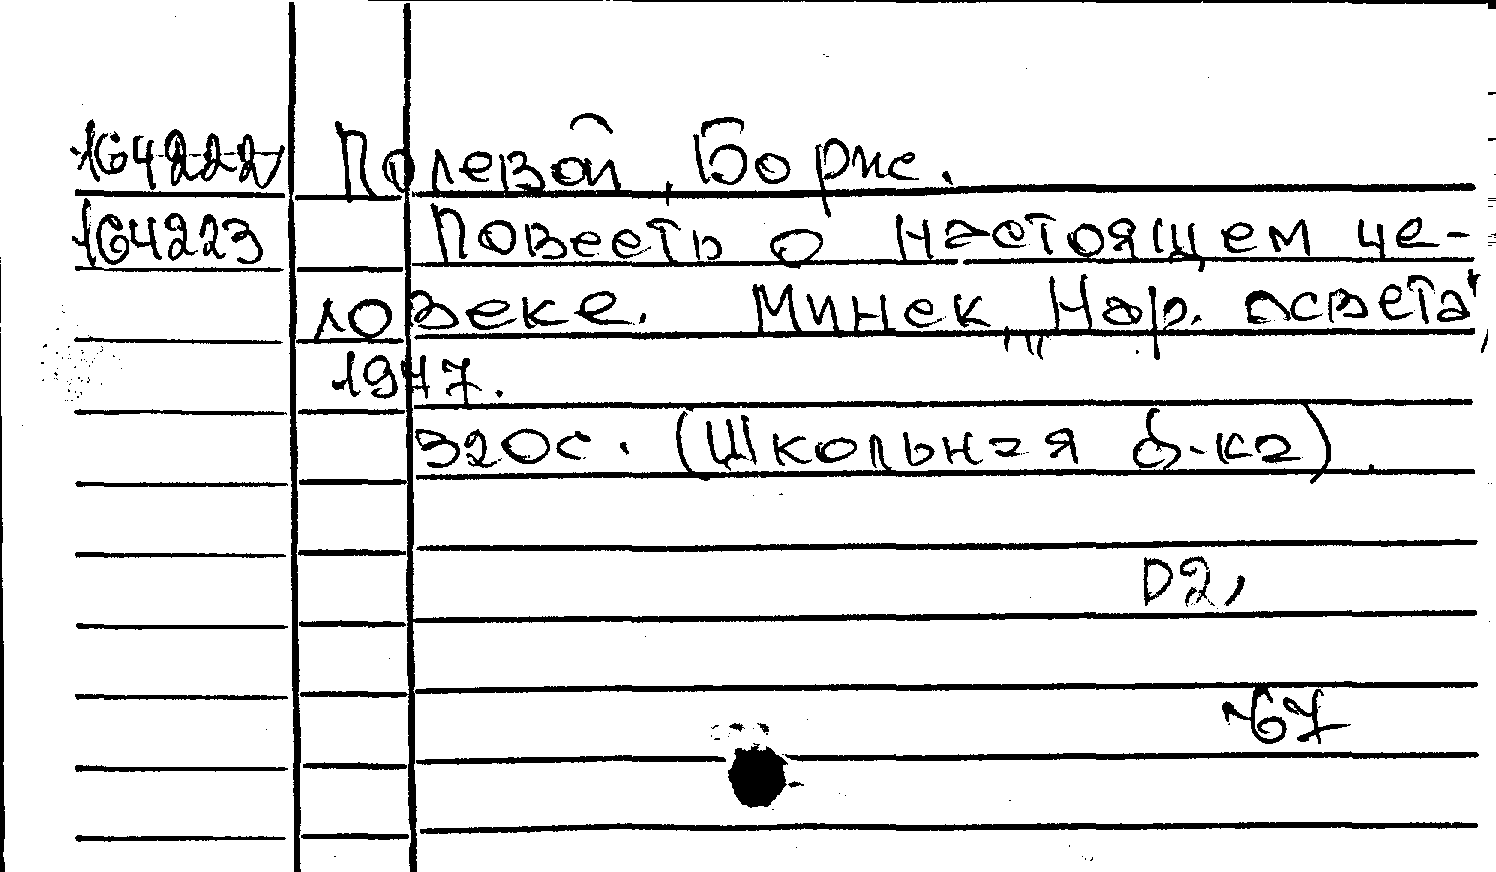 164222 Полевой, Борис.
164223 Повесть о настоящем че-
ловеке. Минск, "Нар. асвета",
1977.
320с. (Школьная б-ка).
D2,
167